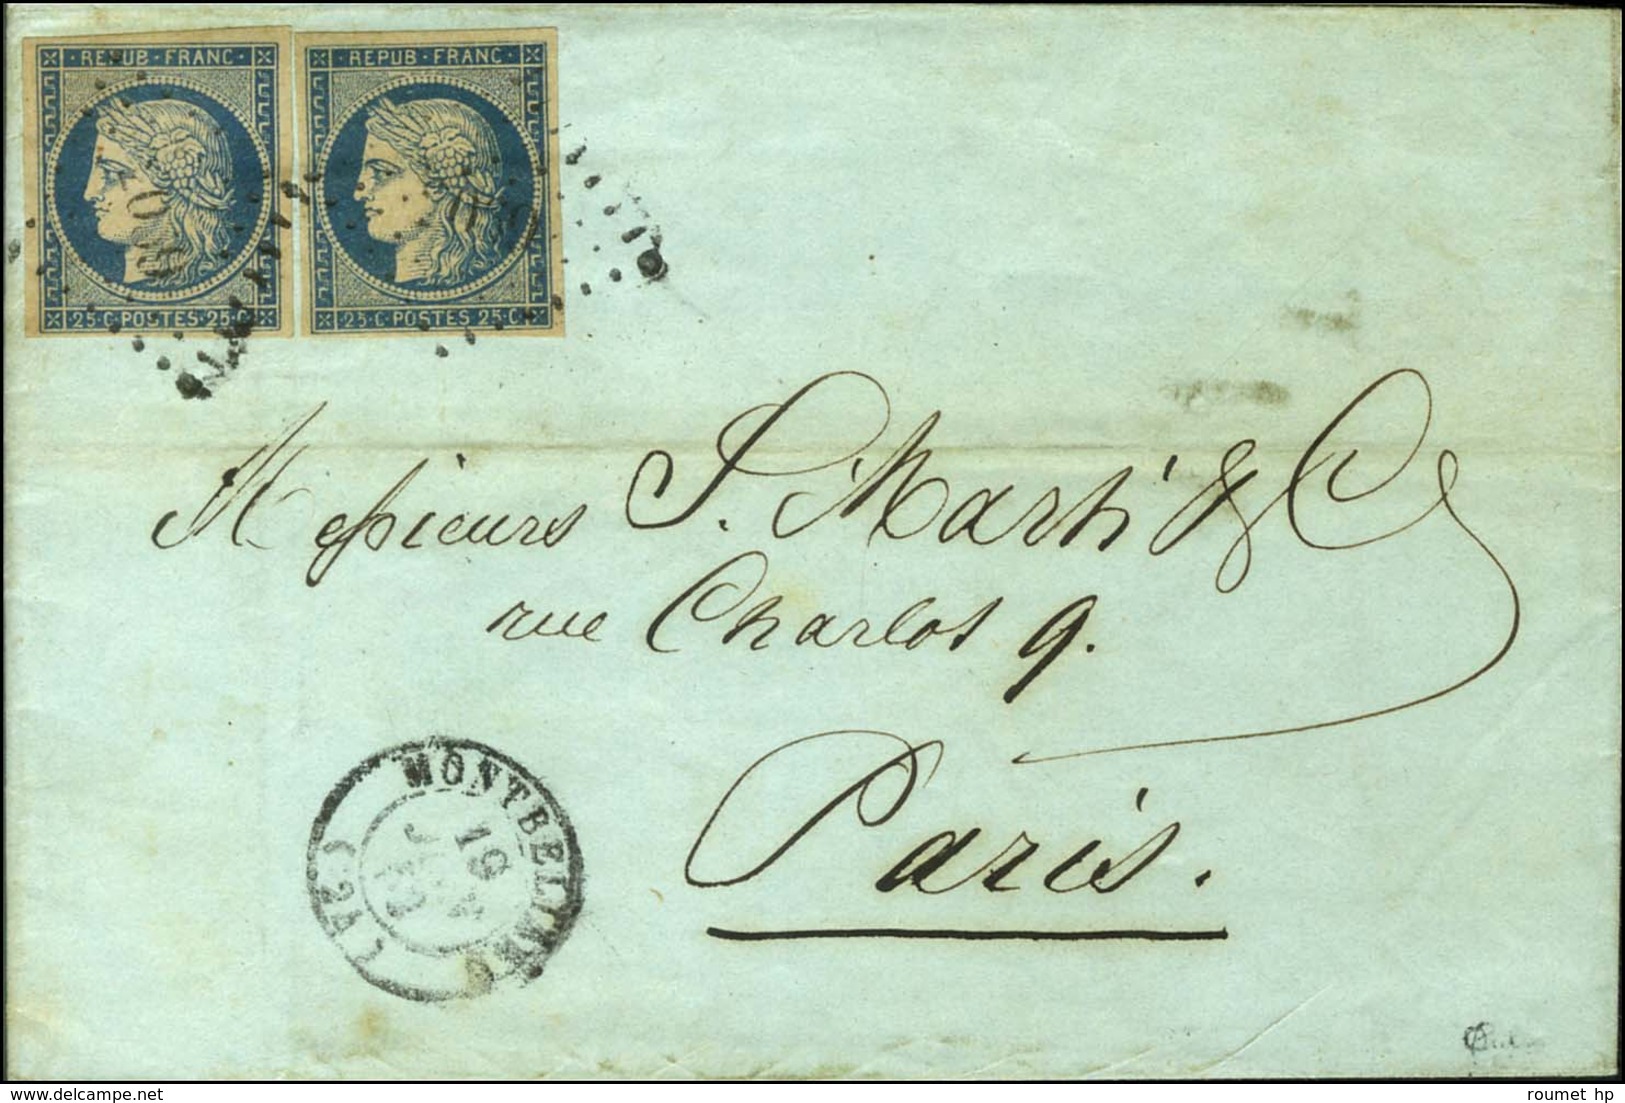 REPUB · FRANC ·
· REPUB · FRANC ·
25 · C · POSTES · 25 · C
25 · C · POSTES 25 · C
Messieurs J. Marti & C
rue Charlot 9.
Paris.
MONTBELIARD
19
(24)
roumet hp